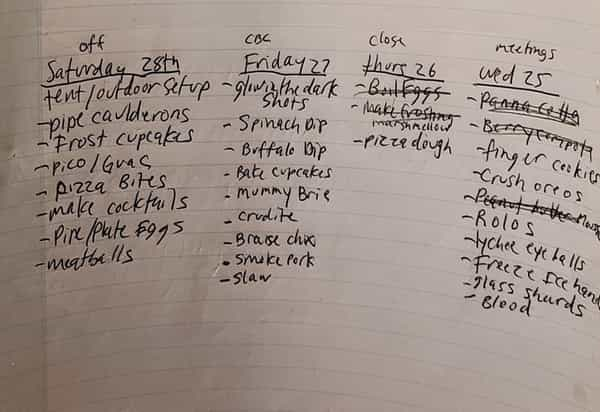 off
Saturday 28th
tent/outdoor setup
-pipe caulderons
-Frost cupcakes
-pico/Guac
- Pizza Bites
-make cocktails
-Pipe/Plate Eggs
-meatballs
CBC
Friday 27
-glow in the dark
shots
- Spinach Dip
- Buffalo Dip
- Bake cupcakes
- Mummy Brie
- crudite
- Braise chix
- Smoke Pork
- Slaw
close
thurs 26
- Boil Eggs
- Make frosting
marshmellow
-pizza dough
meetings
wed 25
- Panna Cotta
- Berry compote
-finger cookies
-crush oreos
-Peanut butter Mousse
- Rolos
-lychee eye balls
- Freeze Ice hand
-glass shards
- Blood